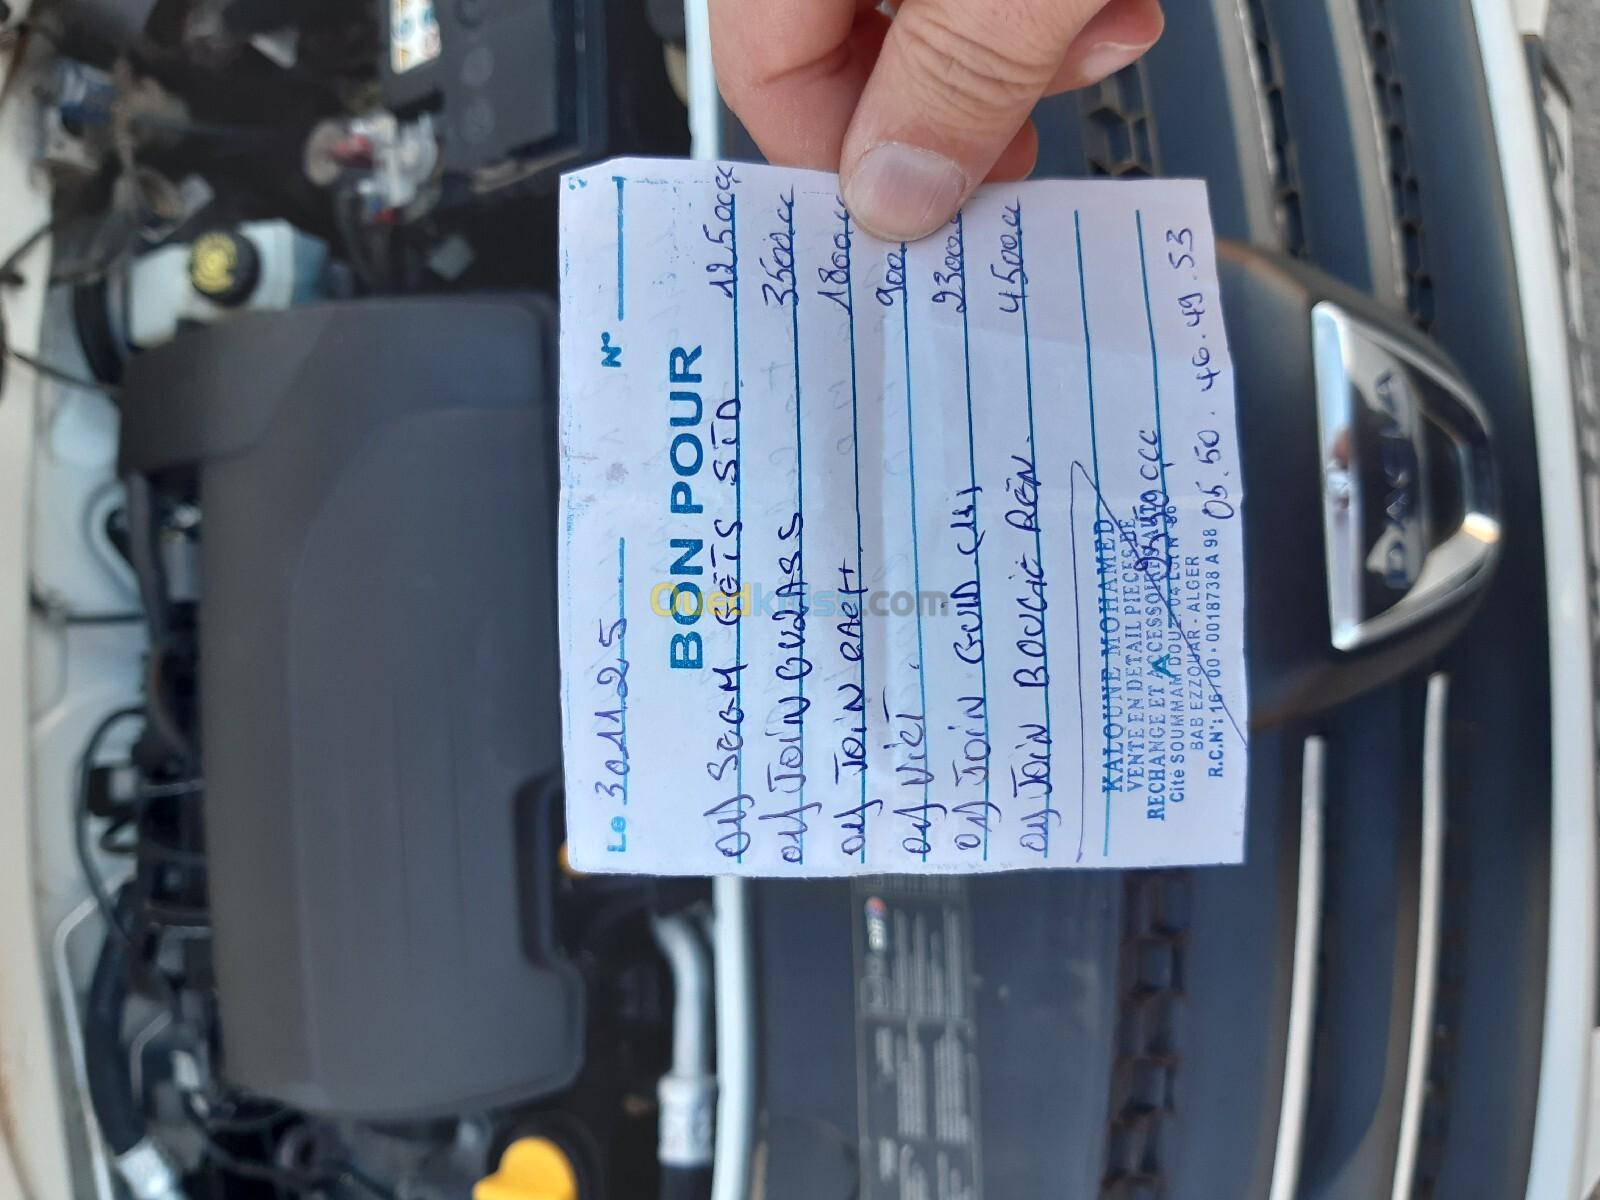 Le 30.11.25 N°
BON POUR
01 SEGM RETS STD 12500
01 JOIN CUVASS 3500
01 JOIN CACH 1800
01 VILT. 900
01 JOIN 2300
01 JOIN BOUGIE REN. 4500
KALOUNE MOHAMED
VENTE EN DETAIL PIECES DE
RECHANGE ET ACCESSOIRES AUTO
Cité SOUMMAM DOUZ 04 LGT N°
BAB EZZOUAR - ALGER
R.C.N°: 16/00-0018738 A 98
05.50.46.49.53
Ouedkniss.com
DACIA